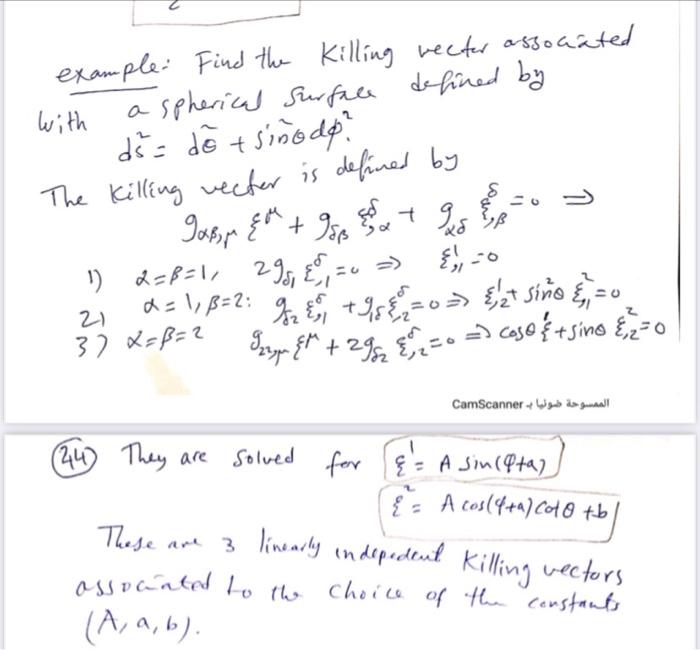 example: Find the Killing vector associated
with a spherical surface defined by
ds² = dθ² + sin²θ dφ².
The Killing vector is defined by
g_{αβ,μ} ξ^μ + g_{δβ} ξ^δ_{,α} + g_{αδ} ξ^δ_{,β} = 0 ⇒
1) α=β=1, 2g_{δ1} ξ^δ_{,1} = 0 ⇒ ξ^1_{,1} = 0
2) α=1, β=2: g_{δ2} ξ^δ_{,1} + g_{1δ} ξ^δ_{,2} = 0 ⇒ ξ^1_{,2} + sin²θ ξ^2_{,1} = 0
3) α=β=2 g_{22,μ} ξ^μ + 2g_{δ2} ξ^δ_{,2} = 0 ⇒ cosθ ξ^1 + sinθ ξ^2_{,2} = 0
الممسوحة ضوئيا بـ CamScanner
244 They are solved for ξ^1 = A sin(φ+a)
ξ^2 = A cos(φ+a) cotθ + b
These are 3 linearly indepedent Killing vectors
associated to the choice of the constants
(A, a, b).